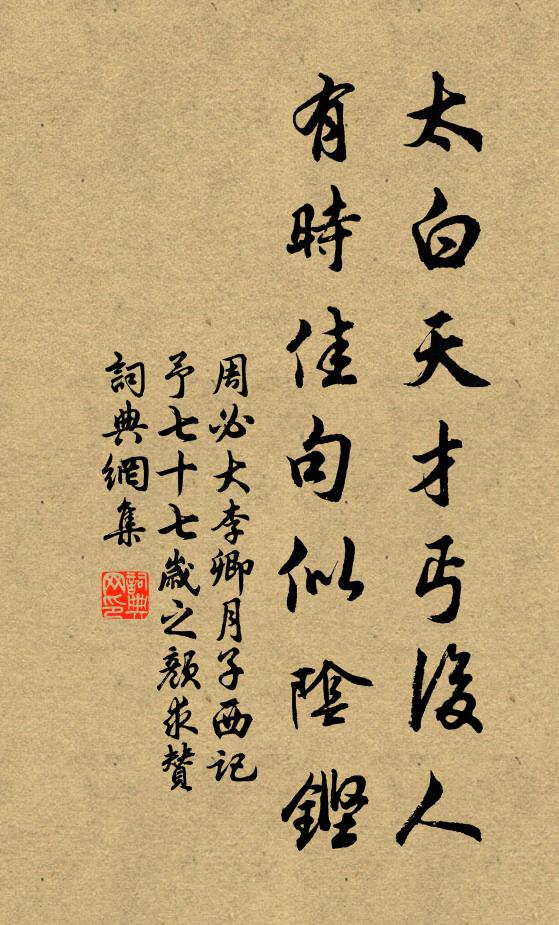 太白天才丐後人
有時佳句似陰鏗
周必大李卿月子西記
予七十七歲之顏求贊
詞典網集
詞典网印